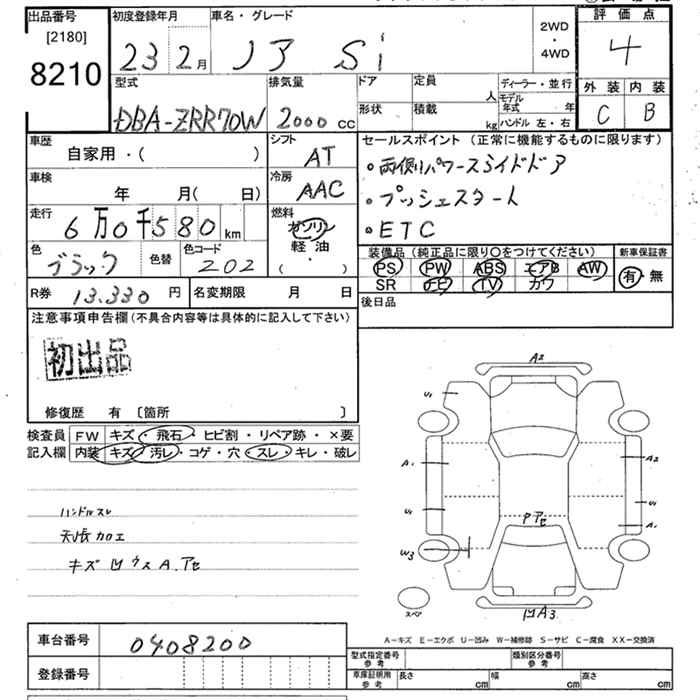 出品番号
[2180]
8210
初度登録年月
23 2月
車名・グレード
ノア Si
2WD
・
4WD
評価点
4
外装 内装
C B
型式
DBA-ZRR70W
排気量
2000 cc
ドア 定員
人
形状 積載
kg
ディーラー・並行
モデル年式 年
ハンドル 左・右
車歴
自家用・( )
シフト
AT
車検
年 月( 日)
冷房
AAC
走行
6万0千580 km
燃料
ガソリン
軽油
・
( )
色
ブラック
色替
色コード
202
R券 13.330 円
名変期限 月 日
セールスポイント(正常に機能するものに限ります)
・両側パワースライドドア
・プッシュスタート
・ETC
装備品(純正品に限り○をつけてください)
新車保証書
PS PW ABS エアB AW
SR ナビ TV カワ
有・無
後日品
注意事項申告欄(不具合内容等は具体的に記入して下さい)
初出品
修復歴 有 〔箇所 〕
検査員 FW キズ・飛石・ヒビ割・リペア跡・×要
記入欄 内装 キズ・汚レ・コゲ・穴・スレ・キレ・破レ
ハンドルスレ
天張カロエ
キズ凹ウスA.アセ
A2
U1
A1
U1
W3
A2
U1
A1
Pアセ
凹A3
スペア
A-キズ E-エクボ U-凹み W-補修跡 S-サビ C-腐食 XX-交換済
車台番号 0408200
登録番号
型式指定番号
参考
類別区分番号
参考
車庫証明用
参考
長さ cm
幅 cm
高さ cm